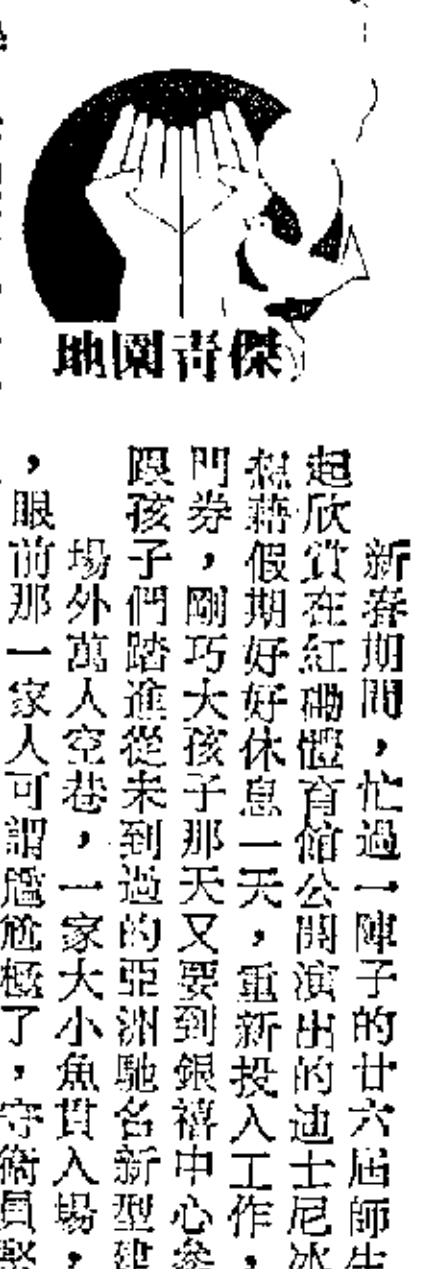 傑青園地
新春期間，忙過一陣子的廿六屆師生
起欣賞在紅磡體育館公開演出的迪士尼冰
想藉假期好好休息一天，重新投入工作，
門券，剛巧大孩子那天又要到銀禧中心參
跟孩子們踏進從未到過的亞洲馳名新型建
場外萬人空巷，一家大小魚貫入場，
，眼前那一家人可謂尷尬極了，守衛員緊